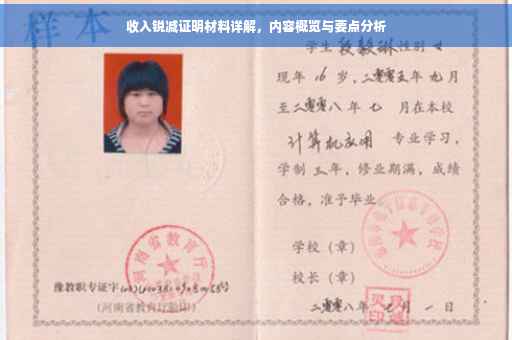 收入锐减证明材料详解，内容概览与要点分析
样本
学生段毅琳性别女
现年16岁，二零零五年九月
至二零零八年七月在本校
计算机应用 专业学习，
学制三年，修业期满，成绩
合格，准予毕业。
学校（章）
校长（章）
二零零八年七月一日
河南省教育厅
豫教职专证字
（河南省教育厅验印）